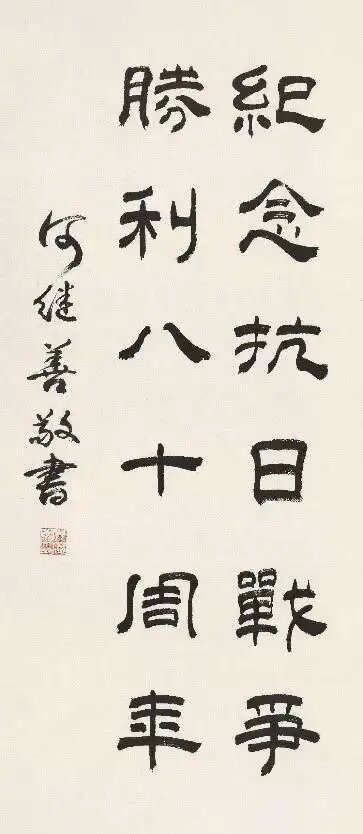 紀念抗日戰爭
勝利八十周年
何继善敬書